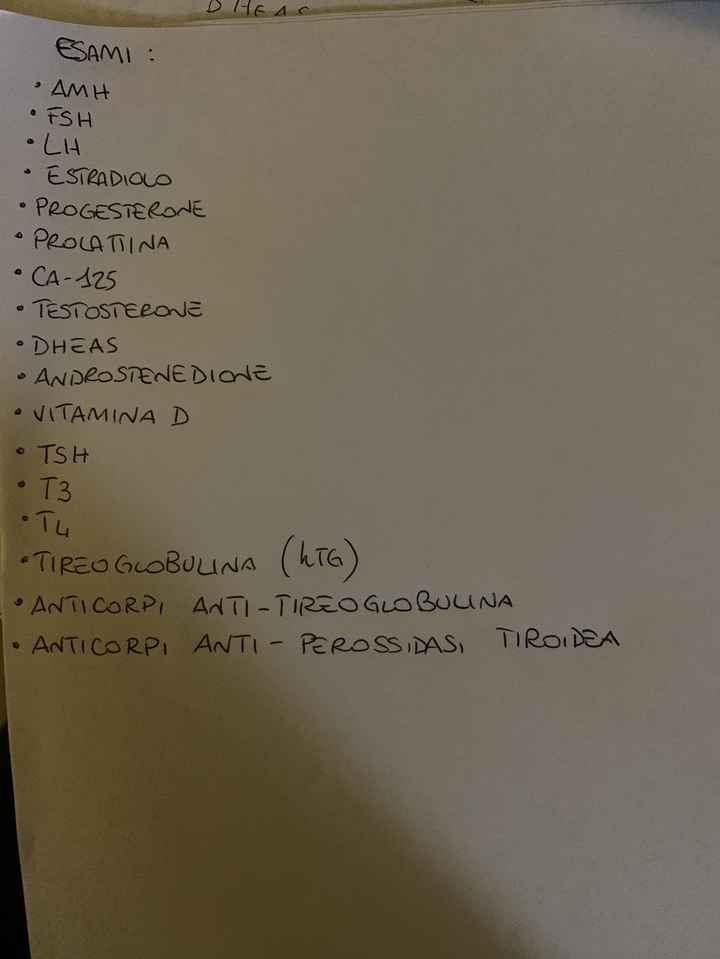 DHEAS
ESAMI :
• AMH
• FSH
• LH
• ESTRADIOLO
• PROGESTERONE
• PROLATTINA
• CA-125
• TESTOSTERONE
• DHEAS
• ANDROSTENEDIONE
• VITAMINA D
• TSH
• T3
• T4
• TIREOGLOBULINA (hTG)
• ANTICORPI ANTI-TIREOGLOBULINA
• ANTICORPI ANTI-PEROSSIDASI TIROIDEA